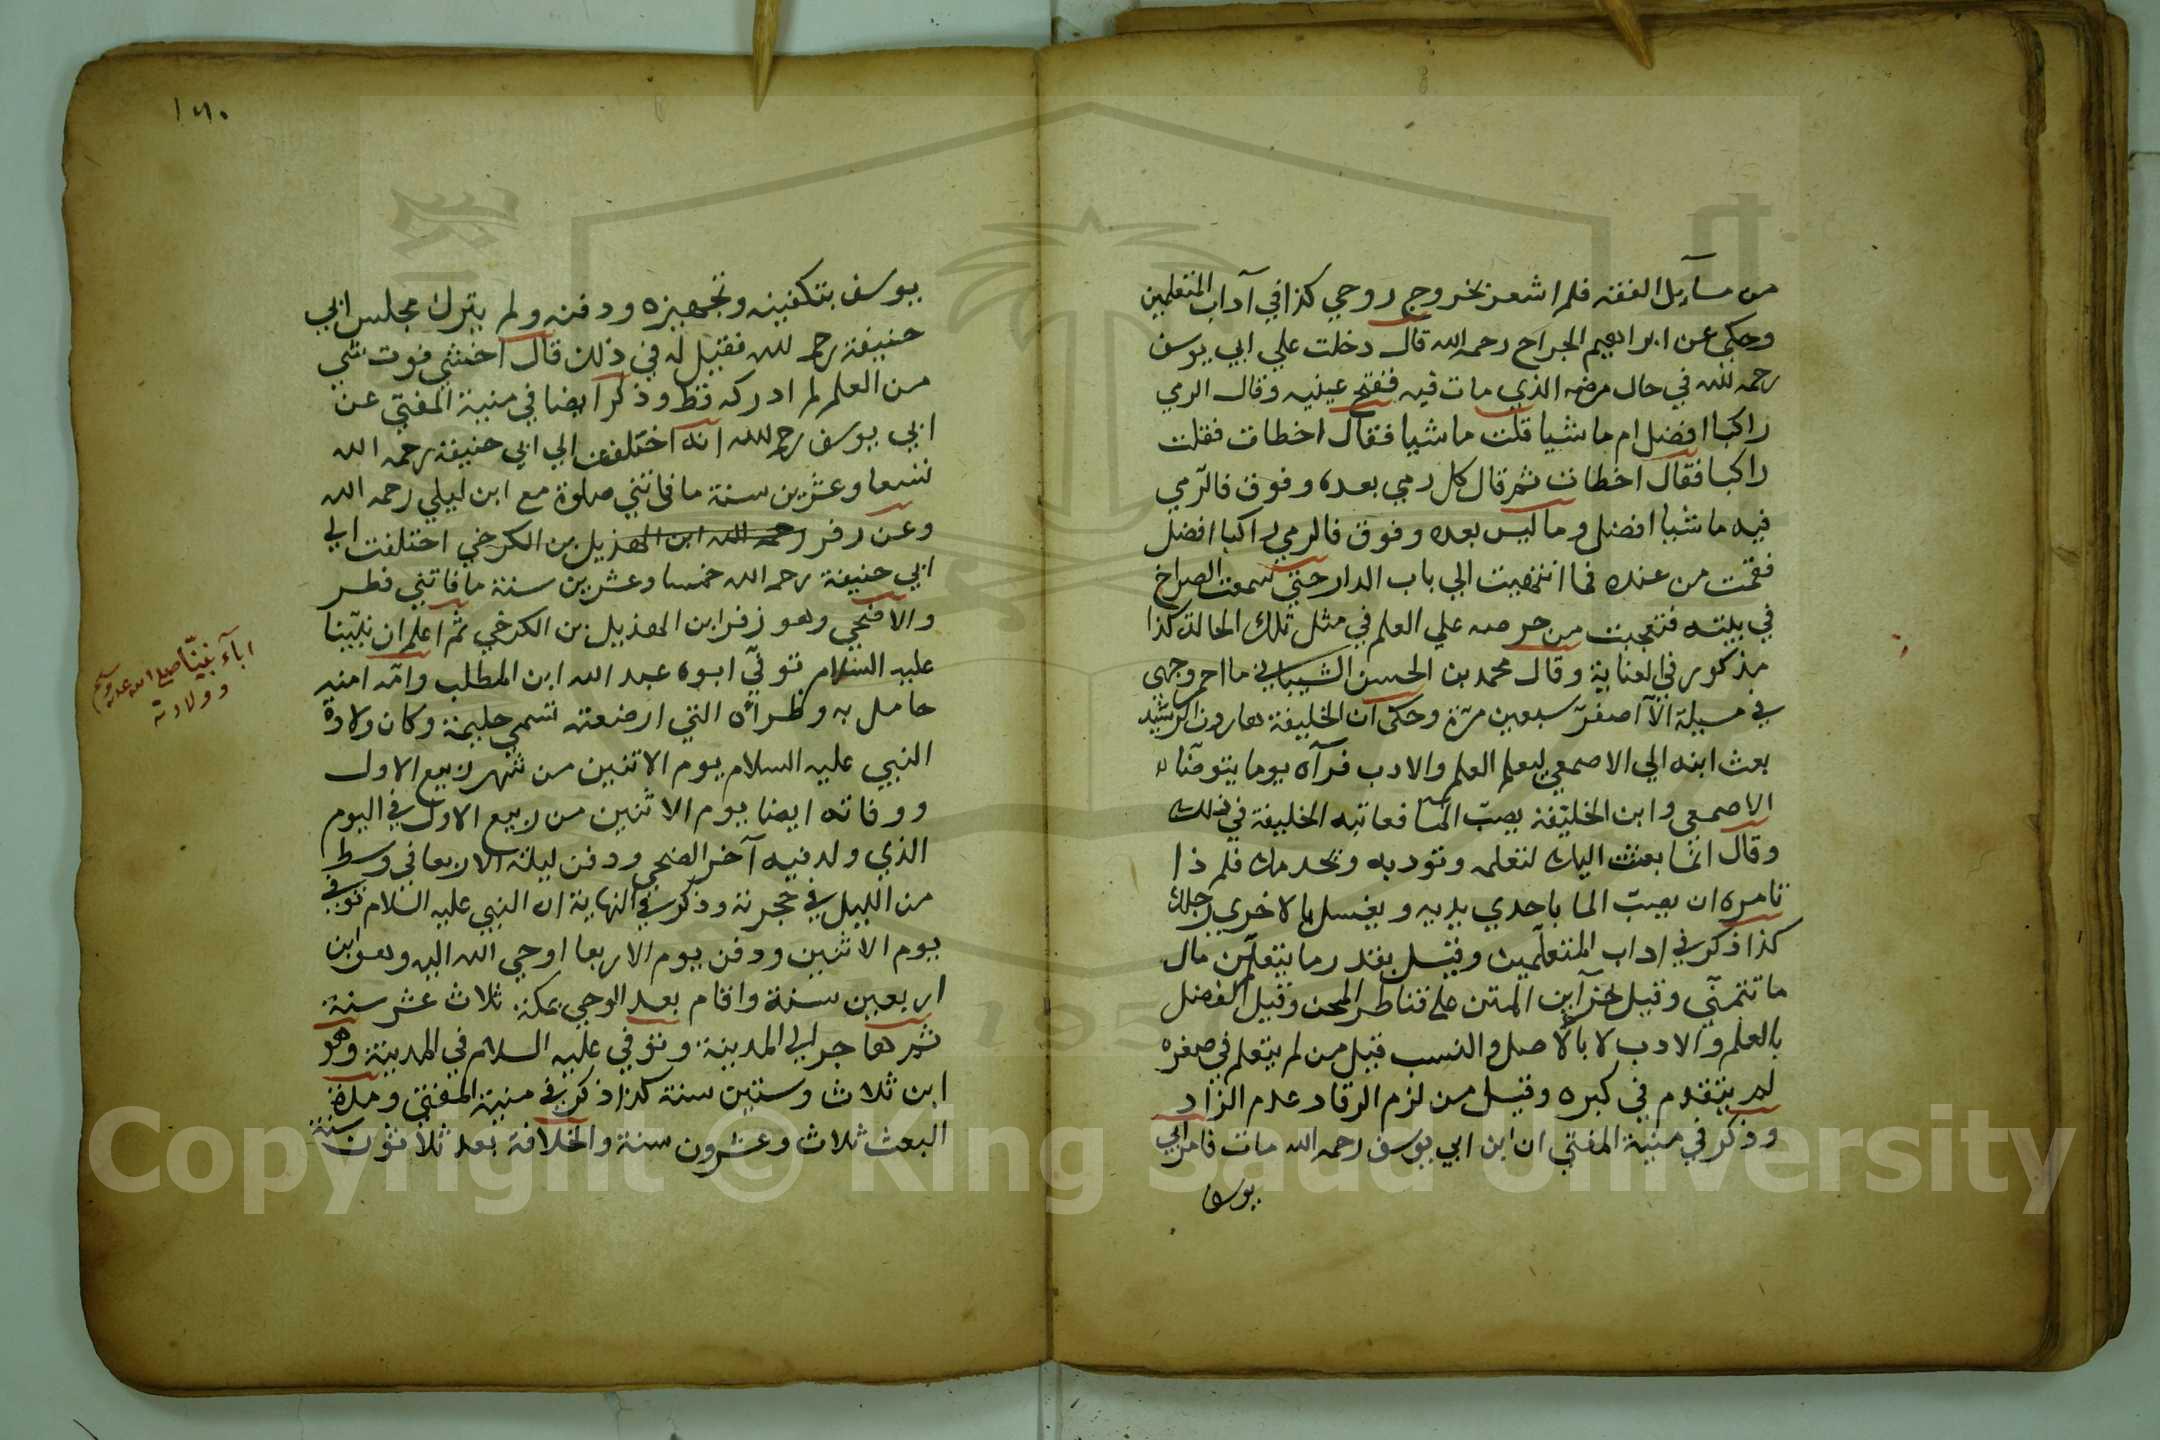 من مسآيل الفقه فلم اشعر بخروج روحي كذا في آداب المتعلمين
وحكى عن ابراهيم الجراح رحمه الله قال دخلت علي ابي يوسف
رحمه الله في حال مرضه الذي مات فيه ففتح عينيه وقال الرمي
راكبا افضل ام ماشيا قلت ماشيا فقال اخطات فقلت
راكبا فقال اخطات ثم قال كل رمي بعده وقوف فالرمي
فيه ماشيا افضل وما ليس بعده وقوف فالرمي راكبا افضل
فقمت من عنده فما انتهيت الي باب الدار حتي سمعت الصراخ
في بيته فتعجبت من حرصه علي العلم في مثل تلك الحالة كذا
مذكور في العناية وقال محمد بن الحسن الشيباني ما احمر وجهي
في مسيلة الآ اصفرّ سبعين مرّة وحكى ان الخليفة هارون الرشيد
بعث ابنه الي الاصمعي ليعلم العلم والادب فرآه يوما يتوضّأ
الاصمعي وابن الخليفة يصبّ المآ فعاتبه الخليفة في ذلك
وقال انما بعثت اليك لتعلمه وتودبه وتخدمك فلم ذا
تامره ان يصبّ الما باحدي يديه ويغسل بالاخري رجلك
كذا ذكر في اداب المتعلّمين وقيل بقدر ما يتعلّمن مال
ما تتمنّي وقيل خزآين المتن على قناطر المحن وقيل الفضل
بالعلم والادب لا بالاصل والنسب قيل من لم يتعلم في صغره
لم يتقدم في كبره وقيل من لزم الرقاد عدم الزّاد
وذكر في منية المفتي ان ابن ابي يوسف رحمه الله مات فامر ابي
يوسف
١٦٠
يوسف بتكفينه وتجهيزه ودفنه ولم يترك مجلس ابي
حنيفة رحمه الله فقيل له في ذلك قال اخشي فوت شي
من العلم لم ادركه قط وذكر ايضا في منية المفتي عن
ابي يوسف رحمه الله انه اختلفت الي ابي حنيفة رحمه الله
تسعا وعشرين سنة ما فاتتني صلوة مع ابن ليلي رحمه الله
وعن زفر رحمه الله ابن الهذيل بن الكرخي اختلفت الي
ابي حنيفة رحمه الله خمسا وعشرين سنة ما فاتني فطر
والاضحي وهو زفر ابن الهذيل بن الكرخي ثم اعلم ان نبيّنا
عليه السلام توفيّ ابوه عبد الله ابن المطلب وامّه امنه
حامل به وظرأه التي ارضعته تسمي حليمة وكان ولادة
النبي عليه السلام يوم الاثنين من شهر ربيع الاول
ووفاته ايضا يوم الاثنين من ربيع الاول في اليوم
الذي ولد فيه آخر الضحي ودفن ليلة الاربعا في وسط
من الليل في حجرته وذكر في النهاية ان النبي عليه السلام توفي
يوم الاثنين ودفن يوم الاربعا اوحي الله اليه وهو ابن
اربعين سنة واقام بعد الوحي بمكة ثلاث عشر سنة
ثم هاجر الي المدينة وتوفي عليه السلام في المدينة وهو
ابن ثلاث وستين سنة كذا ذكر في منية المفتي ومدة
البعث ثلاث وعشرون سنة والخلافة بعد ثلاثون سنة
ابآء نبيّنا صلى الله عليه وسلم
وولادته
Copyright © King Saud University
1957